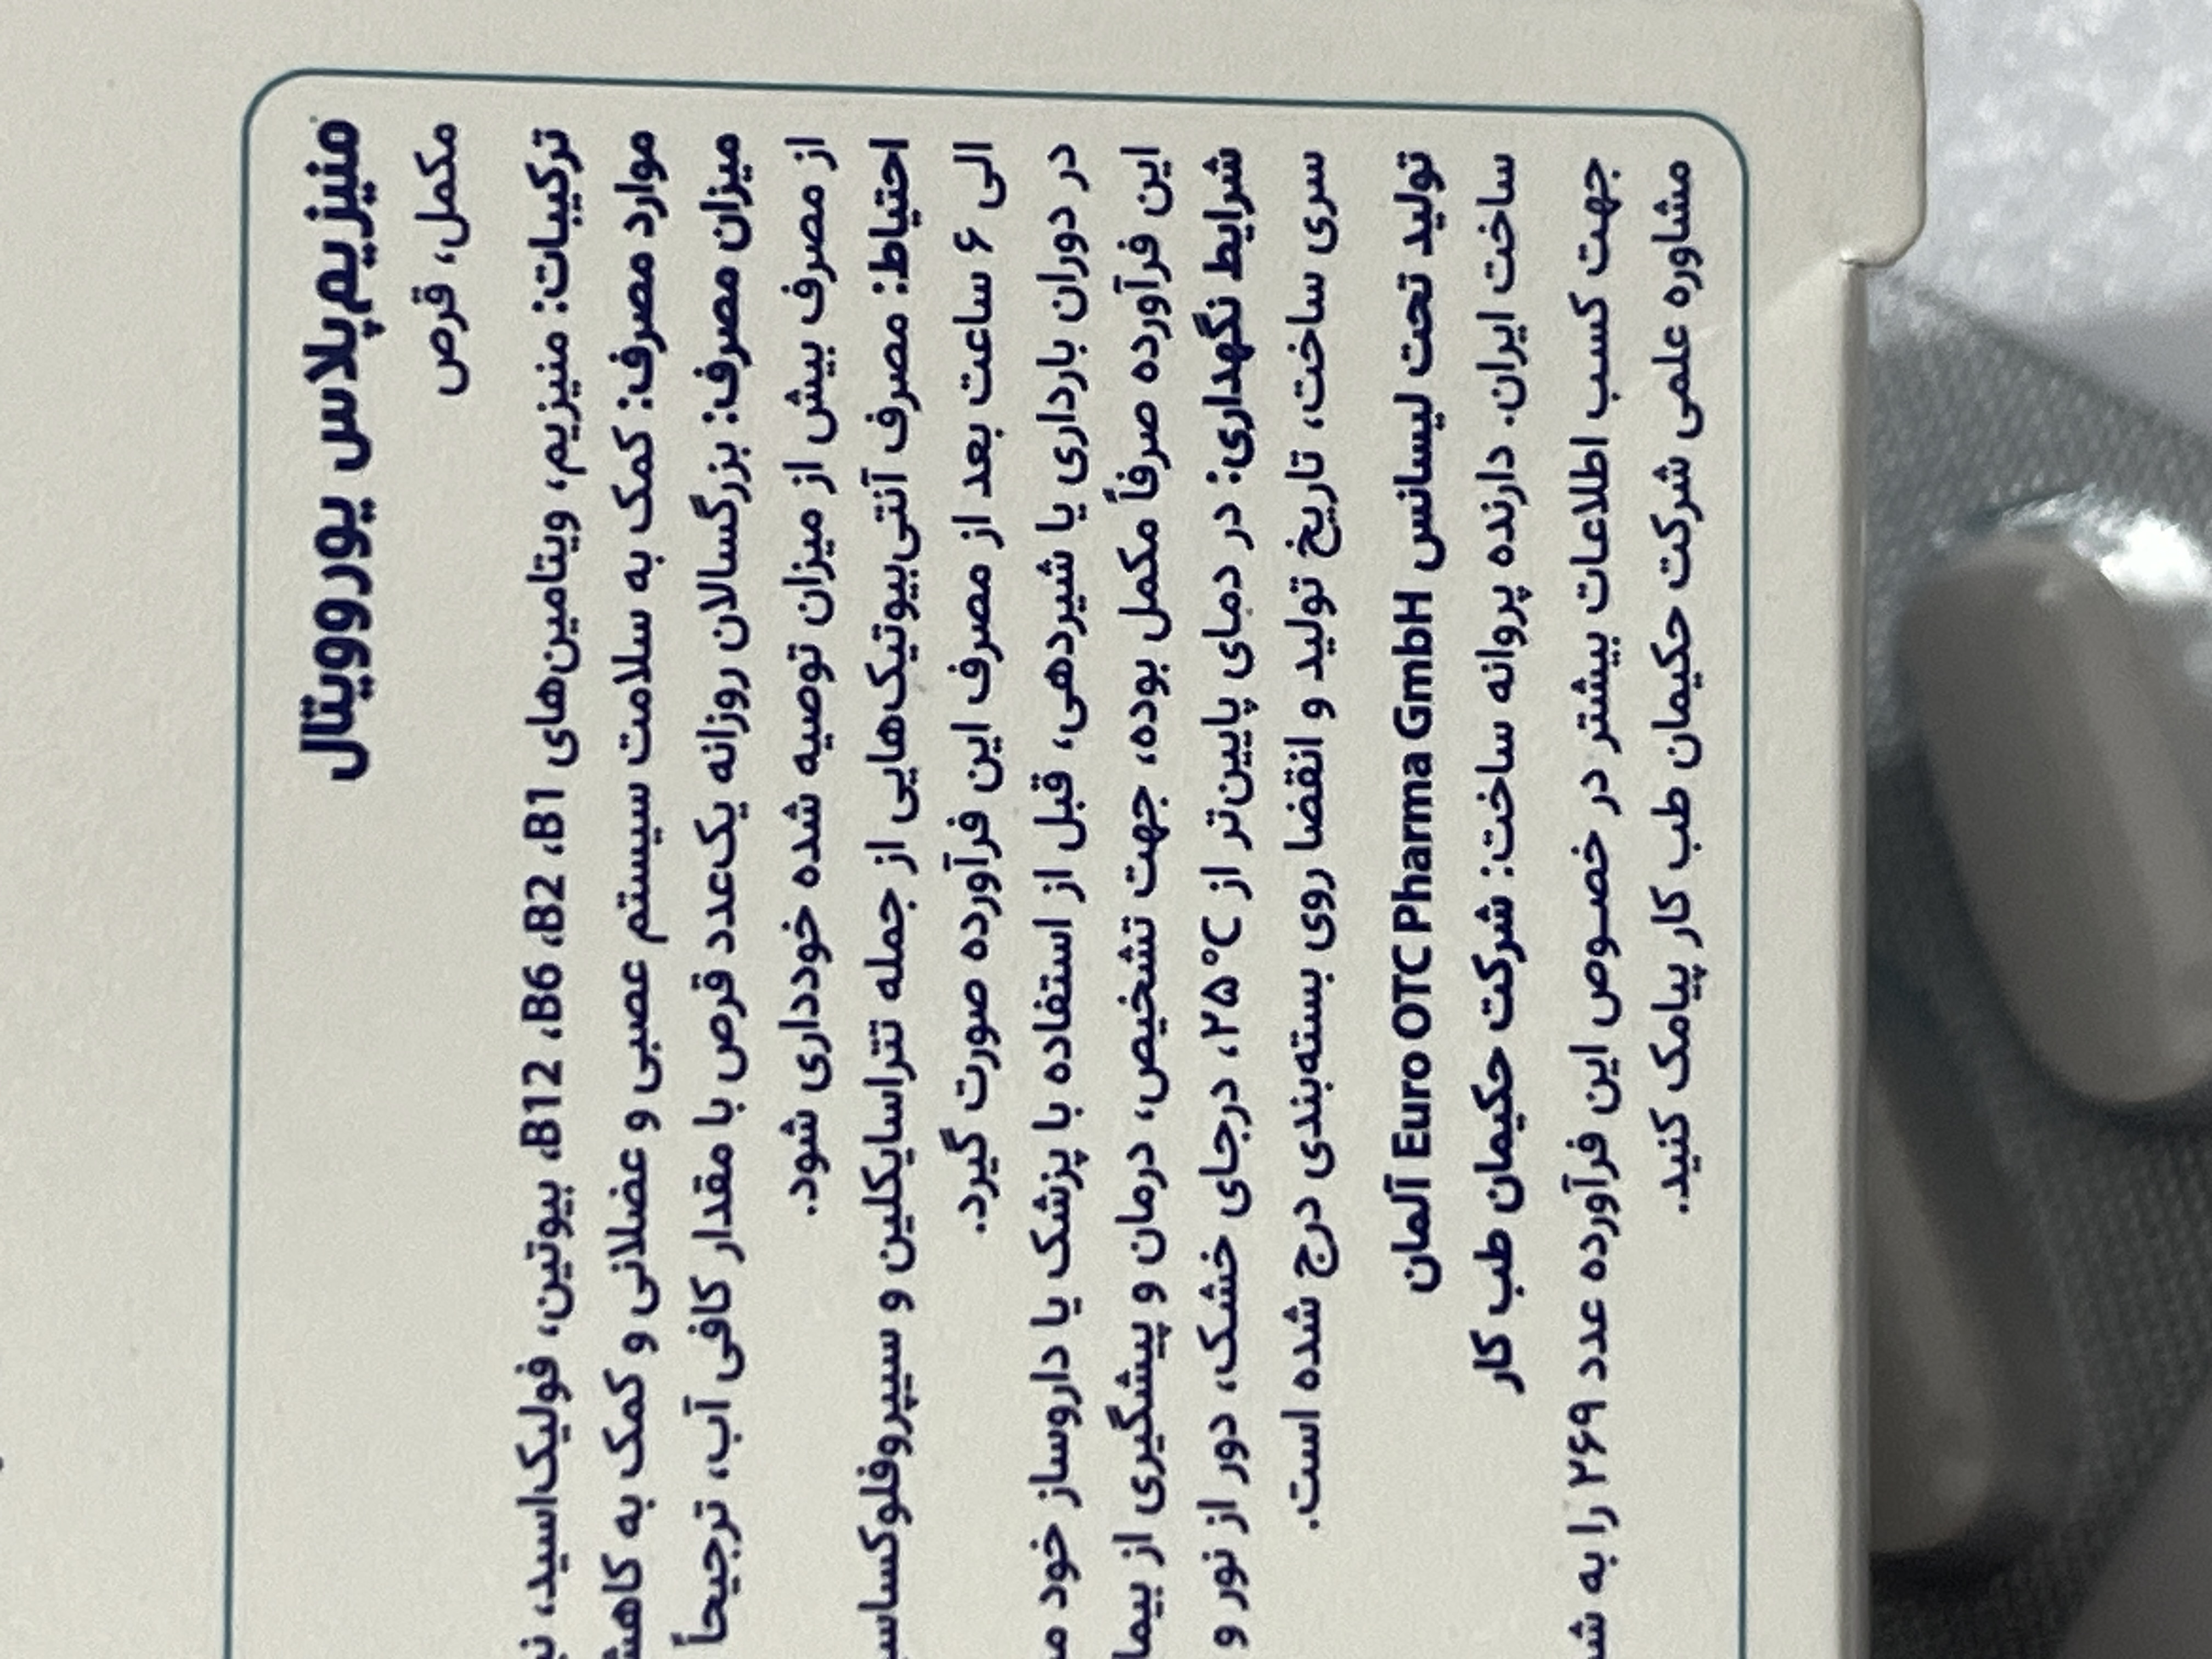 منیزیم‌پلاس یوروویتال
مکمل، قرص
ترکیبات: منیزیم، ویتامین‌های B1، B2، B6، B12، بیوتین، فولیک‌اسید،
موارد مصرف: کمک به سلامت سیستم عصبی و عضلانی و کمک به
میزان مصرف: بزرگسالان روزانه یک‌عدد قرص با مقدار کافی آب، ترجیحاً
از مصرف بیش از میزان توصیه شده خودداری شود.
احتیاط: مصرف آنتی‌بیوتیک‌هایی از جمله تتراسایکلین و
الی ۶ ساعت بعد از مصرف این فرآورده صورت گیرد.
در دوران بارداری یا شیردهی، قبل از استفاده با پزشک یا داروساز خود
این فرآورده صرفاً مکمل بوده، جهت تشخیص، درمان و پیشگیری از
شرایط نگهداری: در دمای پایین‌تر از ۲۵°C، درجای خشک، دور از نور و
سری ساخت، تاریخ تولید و انقضا روی بسته‌بندی درج شده است.
تولید تحت لیسانس Euro OTC Pharma GmbH آلمان
ساخت ایران. دارنده پروانه ساخت: شرکت حکیمان طب کار
جهت کسب اطلاعات بیشتر در خصوص این فرآورده عدد ۲۶۹ را به
مشاوره علمی شرکت حکیمان طب کار پیامک کنید.